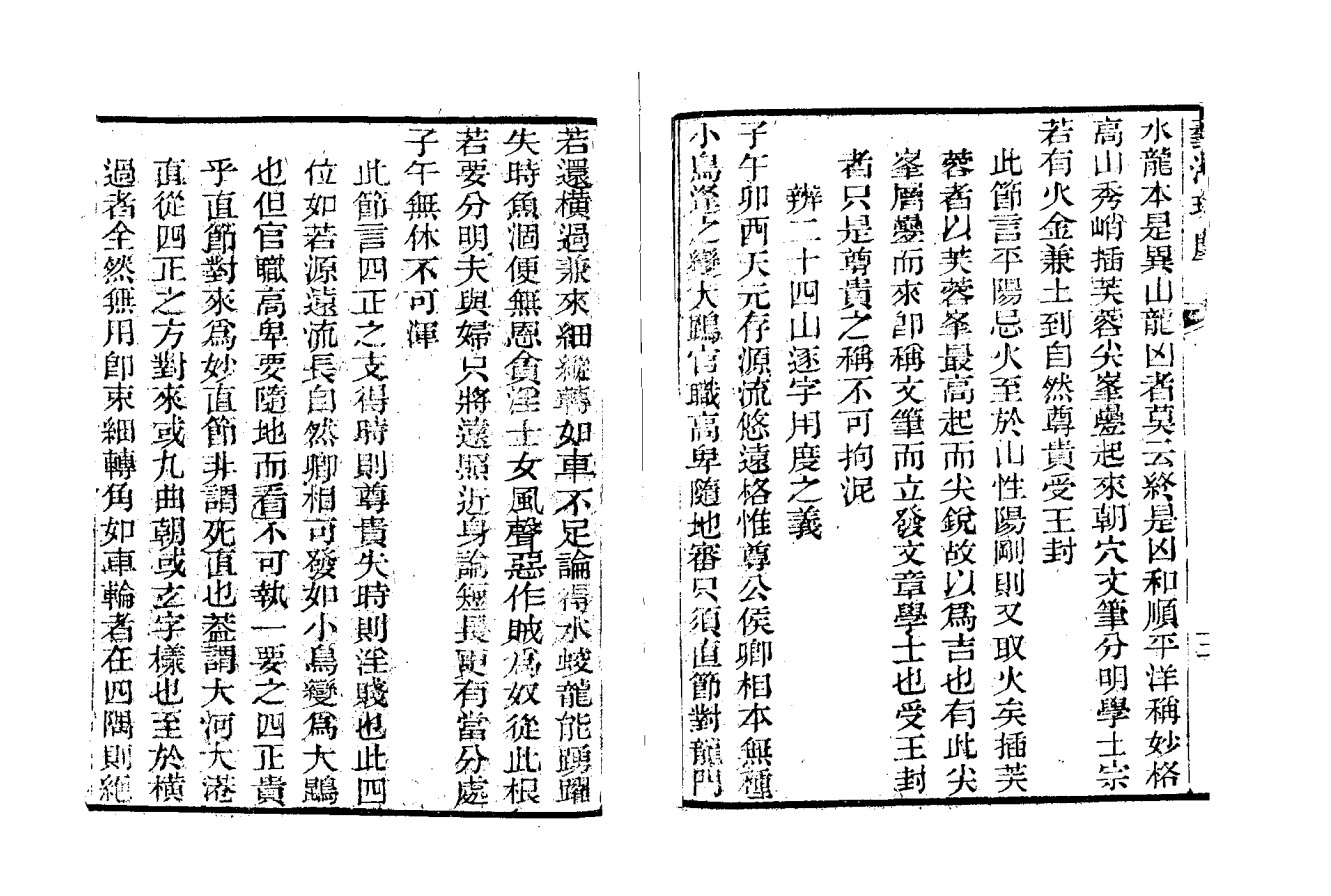 水龍本是異山龍凶者莫云終是凶和順平洋稱妙格
高山秀峭插芙蓉尖峯疊起來朝穴文筆分明學士宗
若有火金兼土到自然尊貴受王封
此節言平陽忌火至於山性陽剛則又取火矣插芙
蓉者以芙蓉峯最高起而尖銳故以爲吉也有此尖
峯層疊而來卽稱文筆而立發文章學士也受王封
者只是尊貴之稱不可拘泥
辨二十四山逐字用度之義
子午卯酉天元存源流悠遠格惟尊公侯卿相本無種
小鳥逢之變大鵾官職高卑隨地審只須直節對龍門
若還橫過兼來細縱轉如車不足論得水蛟龍能踴躍
失時魚涸便無恩貪淫士女風聲惡作賊爲奴從此根
若要分明夫與婦只將遠照近身論短長更有當分處
子午無休不可渾
此節言四正之支得時則尊貴失時則淫賤也此四
位如若源遠流長自然卿相可發如小鳥變爲大鵾
也但官職高卑要隨地而看不可執一要之四正貴
乎直節對來爲妙直節非謂死直也葢謂大河大港
直從四正之方對來或九曲朝或玄字樣也至於橫
過者全然無用卽束細轉角如車輪者在四隅則絶